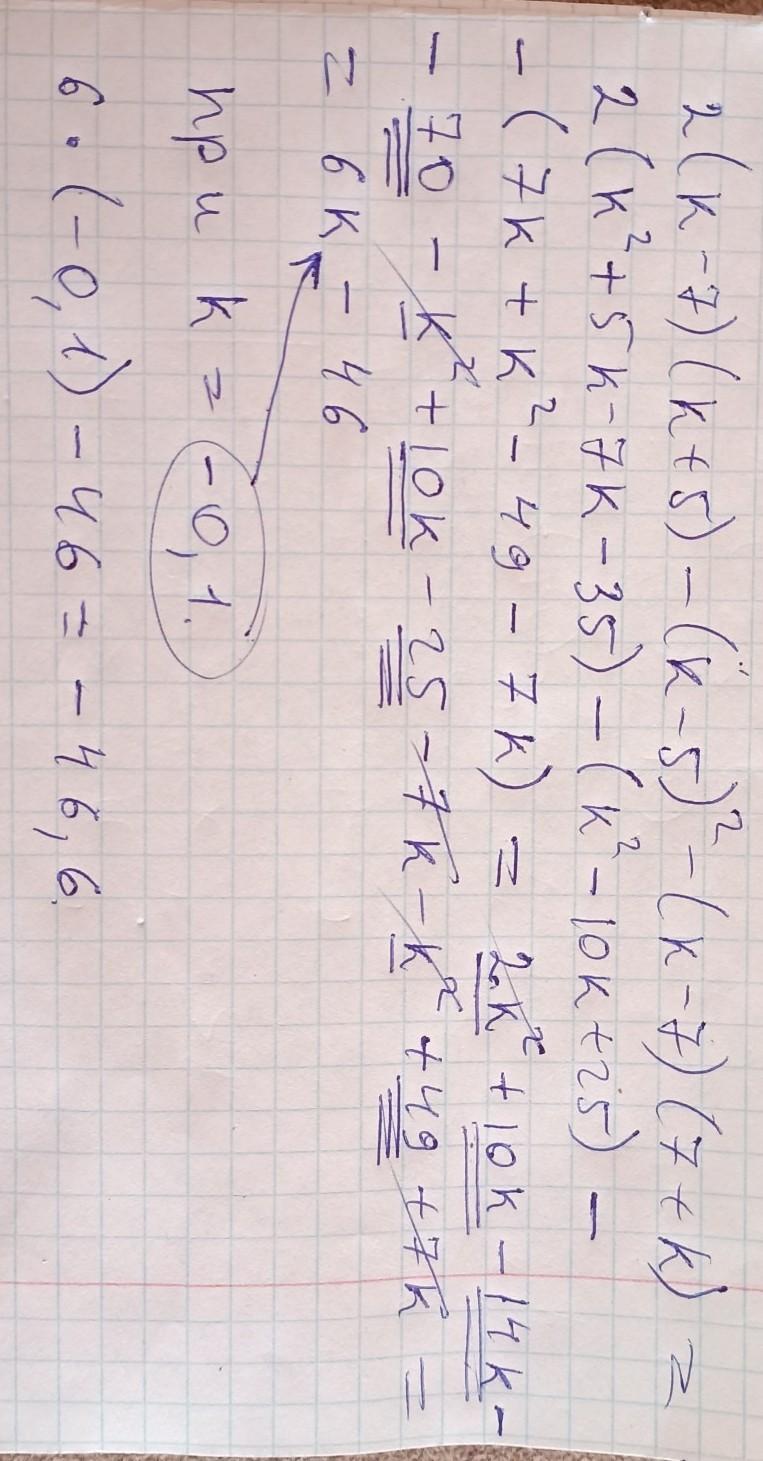 2(k-7)(k+5)-(k-5)²-(k-7)(7+k)=
2(k²+5k-7k-35)-(k²-10k+25)-
-(7k+k²-49-7k)=2k²+10k-14k-
-70-k²+10k-25-7k-k²+49+7k=
=6k-46
при k=-0,1
6·(-0,1)-46=-46,6